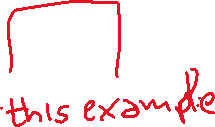 this example